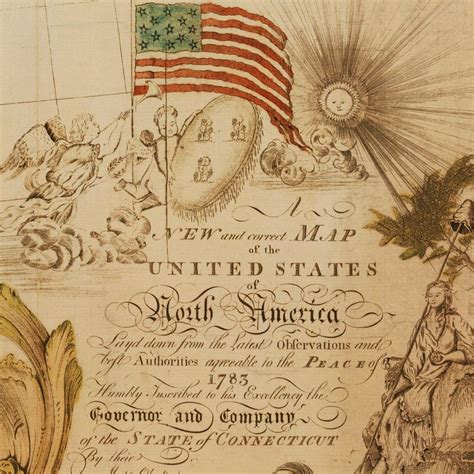 A
NEW and correct MAP
of the
UNITED STATES
of
North America
Layd down from the Latest Observations and
best Authorities agreeable to the PEACE of
1783
Humbly Inscribed to his Excellency the
Governor and Company
of the STATE of CONNECTICUT
By their